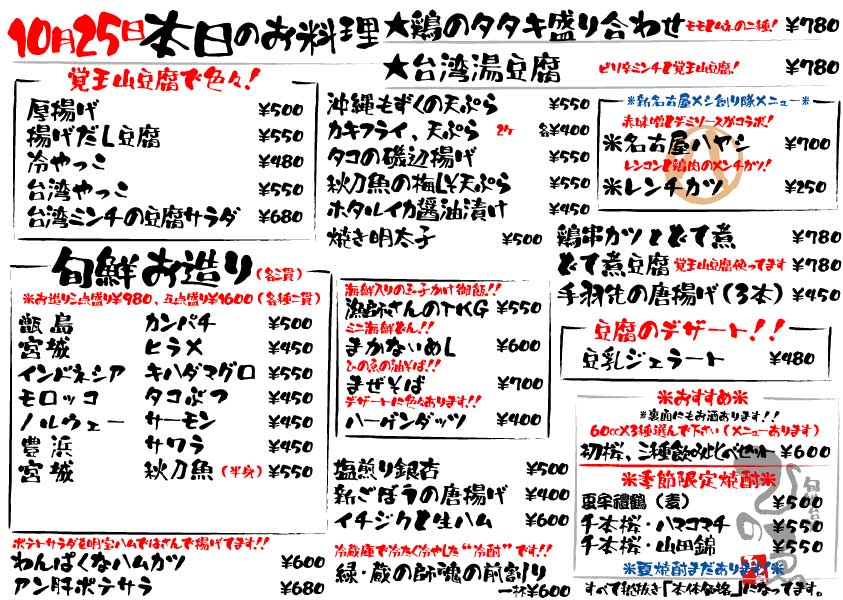 10月25日本日のお料理
★鶏のタタキ盛り合わせ モモとムネの二種! ¥780
★台湾湯豆腐 ピリ辛ミンチと覚王山豆腐! ¥780
覚王山豆腐で色々!
厚揚げ ¥500
揚げだし豆腐 ¥550
冷やっこ ¥480
台湾やっこ ¥550
台湾ミンチの豆腐サラダ ¥680
沖縄もずくの天ぷら ¥550
カキフライ、天ぷら 2ケ 各¥400
タコの磯辺揚げ ¥550
秋刀魚の梅しそ天ぷら ¥550
ホタルイカ醤油漬け ¥450
焼き明太子 ¥500
※新名古屋メシ創り隊メニュー※
赤味噌とデミソースがコラボ!
※名古屋ハヤシ ¥700
レンコンと鶏肉のメンチカツ!
※レンチカツ ¥250
鶏串カツとどて煮 ¥780
どて煮豆腐 覚王山豆腐使ってます ¥780
手羽先の唐揚げ(3本) ¥450
旬鮮お造り(各二貫)
※お造り三点盛り¥980、五点盛り¥1600(各種二貫)
甑島 カンパチ ¥500
宮城 ヒラメ ¥450
インドネシア キハダマグロ ¥550
モロッコ タコぶつ ¥450
ノルウェー サーモン ¥450
豊浜 サワラ ¥450
宮城 秋刀魚(半身) ¥550
海鮮入りの玉子かけ御飯!!
漁師さんのTKG ¥550
ミニ海鮮どん!!
まかないめし ¥600
ひの家の油そば!!
まぜそば ¥700
デザートに色々あります!!
ハーゲンダッツ ¥400
豆腐のデザート!!
豆乳ジェラート ¥480
※おすすめ※
※裏面にもお酒あります!!
60cc×3種選んで下さい(メニューあります)
初桜、三種飲み比べセット ¥600
※季節限定焼酎※
中々禮鶴(麦) ¥500
千本桜・ハマコマチ ¥550
千本桜・山田錦 ¥550
※夏焼酎まだあります※
すべて税抜き「本体価格」になってます。
塩煎り銀杏 ¥500
新ごぼうの唐揚げ ¥400
イチジクと生ハム ¥600
ポテトサラダを明宝ハムではさんで揚げてます!!
わんぱくなハムカツ ¥600
アン肝ポテサラ ¥680
冷蔵庫で冷たく冷やした"冷酎"です!!
緑・蔵の師魂の前割り
一杯¥600